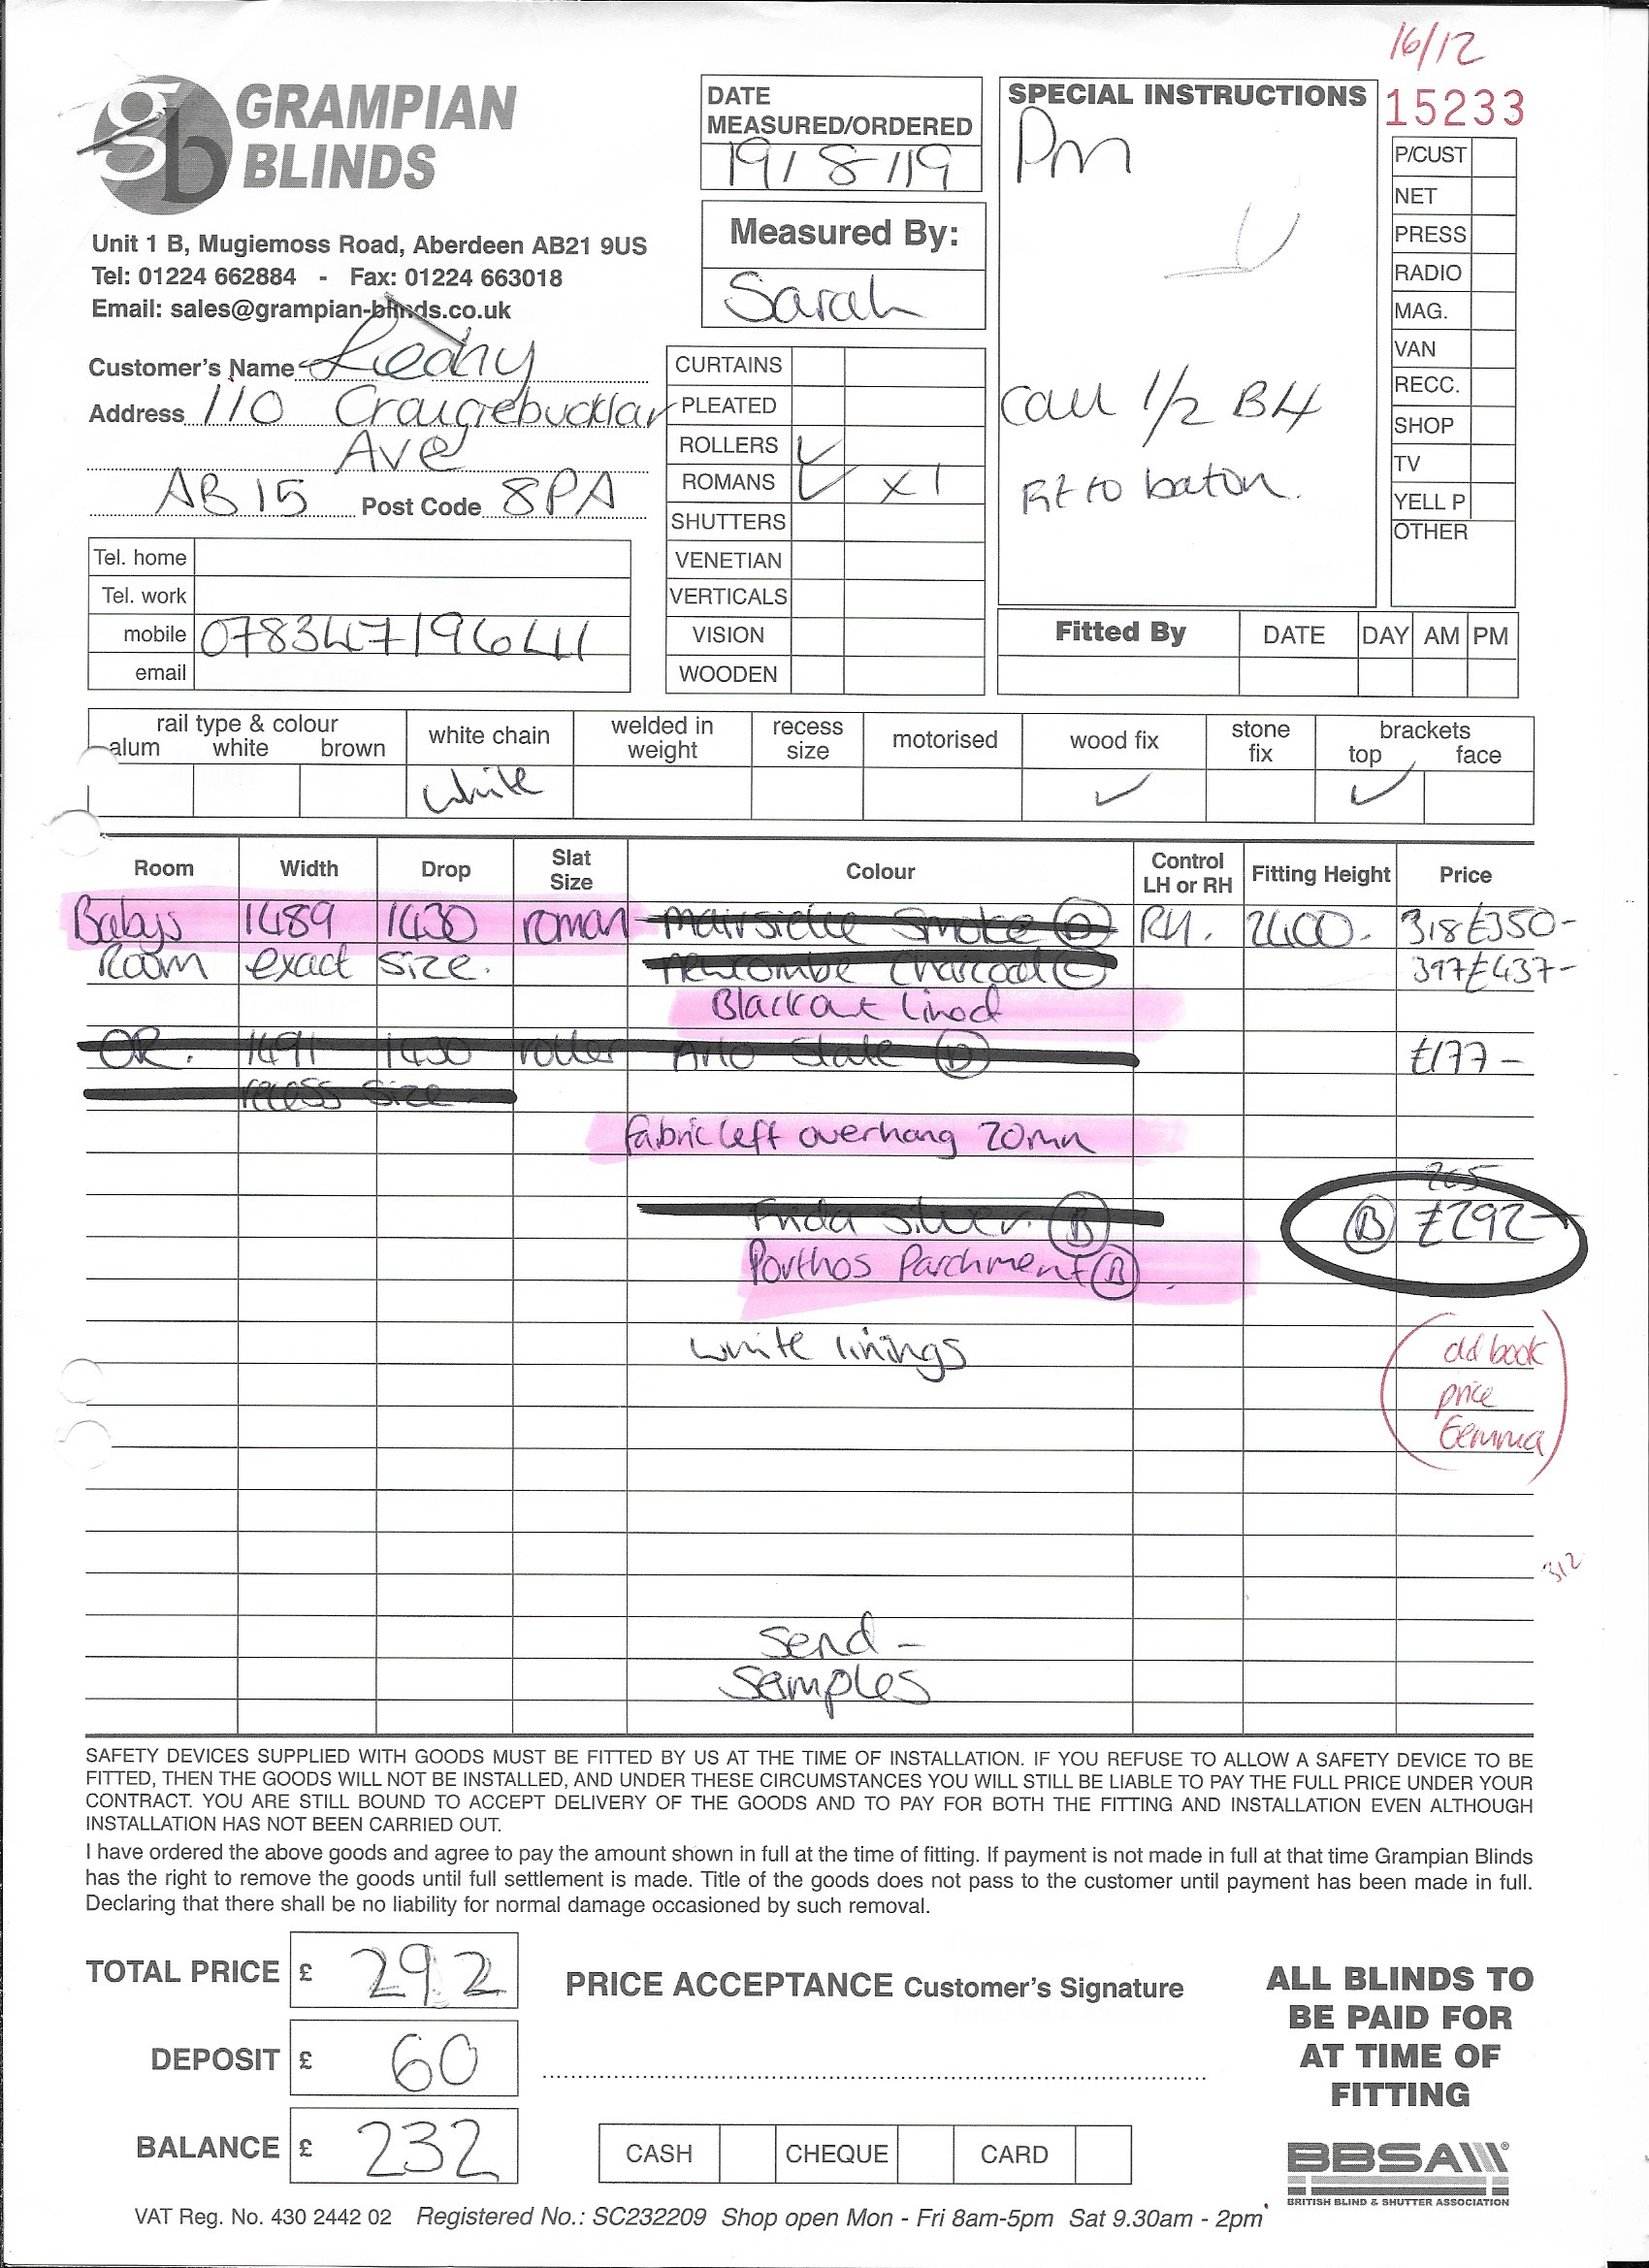 16/12
GRAMPIAN
BLINDS
Unit 1 B, Mugiemoss Road, Aberdeen AB21 9US
Tel: 01224 662884 - Fax: 01224 663018
Email: sales@grampian-blinds.co.uk
DATE
MEASURED/ORDERED
19/8/19
Measured By:
Sarah
SPECIAL INSTRUCTIONS
Pm
Call 1/2 B4
Fit to baton.
15233
P/CUST
NET
PRESS
RADIO
MAG.
VAN
RECC.
SHOP
TV
YELL P
OTHER
Customer's Name
Address 110 Craigiebucklar
Ave
AB15 Post Code 8PA
Tel. home
Tel. work
mobile 07834719641
email
CURTAINS
PLEATED
ROLLERS ✓
ROMANS ✓ x1
SHUTTERS
VENETIAN
VERTICALS
VISION
WOODEN
Fitted By DATE DAY AM PM
rail type & colour
alum white brown
white chain
welded in weight
recess size
motorised
wood fix
stone fix
brackets
top face
white ✓ ✓
Room Width Drop Slat Size Colour Control LH or RH Fitting Height Price
Babys 1489 1430 roman Smoke (D) RH. 2400. 318 £350-
Room exact size. Newcombe Charcoal (C) 397 £437-
Blackout Lined
OR. 1491 1430 roller Arlo Slate (D) £177-
recess size
Fabric left overhang 20mm
265
Frida Silver. (B) (B) £292-
Porthos Parchment (B).
white linings
old book
price
Gemma
312
Send -
Samples
SAFETY DEVICES SUPPLIED WITH GOODS MUST BE FITTED BY US AT THE TIME OF INSTALLATION. IF YOU REFUSE TO ALLOW A SAFETY DEVICE TO BE
FITTED, THEN THE GOODS WILL NOT BE INSTALLED, AND UNDER THESE CIRCUMSTANCES YOU WILL STILL BE LIABLE TO PAY THE FULL PRICE UNDER YOUR
CONTRACT. YOU ARE STILL BOUND TO ACCEPT DELIVERY OF THE GOODS AND TO PAY FOR BOTH THE FITTING AND INSTALLATION EVEN ALTHOUGH
INSTALLATION HAS NOT BEEN CARRIED OUT.
I have ordered the above goods and agree to pay the amount shown in full at the time of fitting. If payment is not made in full at that time Grampian Blinds
has the right to remove the goods until full settlement is made. Title of the goods does not pass to the customer until payment has been made in full.
Declaring that there shall be no liability for normal damage occasioned by such removal.
TOTAL PRICE £ 292
DEPOSIT £ 60
BALANCE £ 232
PRICE ACCEPTANCE Customer's Signature
CASH CHEQUE CARD
ALL BLINDS TO
BE PAID FOR
AT TIME OF
FITTING
BBSA
BRITISH BLIND & SHUTTER ASSOCIATION
VAT Reg. No. 430 2442 02 Registered No.: SC232209 Shop open Mon - Fri 8am-5pm Sat 9.30am - 2pm